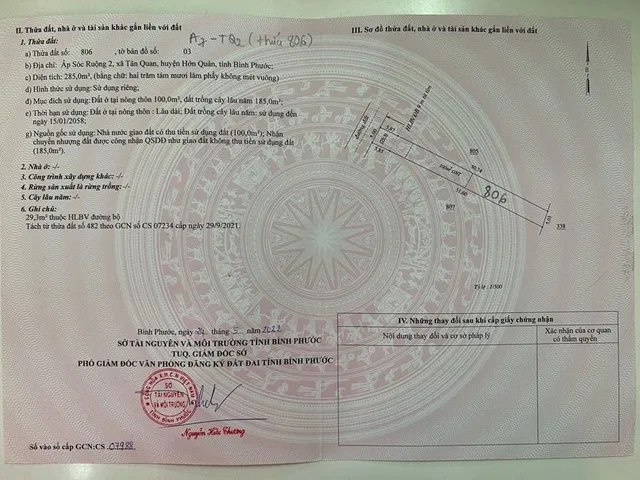 II. Thửa đất, nhà ở và tài sản khác gắn liền với đất
A7-TQ2 (thửa 806)
1. Thửa đất:
a) Thửa đất số: 806 , tờ bản đồ số: 03
b) Địa chỉ: Ấp Sóc Ruộng 2, xã Tân Quan, huyện Hớn Quản, tỉnh Bình Phước;
c) Diện tích: 285,0m², (bằng chữ: hai trăm tám mươi lăm phẩy không mét vuông)
d) Hình thức sử dụng: Sử dụng riêng;
đ) Mục đích sử dụng: Đất ở tại nông thôn 100,0m², đất trồng cây lâu năm 185,0m²;
e) Thời hạn sử dụng: Đất ở tại nông thôn : Lâu dài; Đất trồng cây lâu năm: sử dụng đến
ngày 15/01/2058;
g) Nguồn gốc sử dụng: Nhà nước giao đất có thu tiền sử dụng đất (100,0m²); Nhận
chuyển nhượng đất được công nhận QSDĐ như giao đất không thu tiền sử dụng đất
(185,0m²).
2. Nhà ở: -/-
3. Công trình xây dựng khác: -/-
4. Rừng sản xuất là rừng trồng: -/-
5. Cây lâu năm: -/-
6. Ghi chú:
29,3m² thuộc HLBV đường bộ
Tách từ thửa đất số 482 theo GCN số CS 07234 cấp ngày 29/9/2021.
Bình Phước, ngày tháng 2022
SỞ TÀI NGUYÊN VÀ MÔI TRƯỜNG TỈNH BÌNH PHƯỚC
TUQ. GIÁM ĐỐC SỞ
PHÓ GIÁM ĐỐC VĂN PHÒNG ĐĂNG KÝ ĐẤT ĐAI TỈNH BÌNH PHƯỚC
SỞ
TÀI NGUYÊN
VÀ MÔI TRƯỜNG
TỈNH BÌNH PHƯỚC
Nguyễn Hữu Thường
Số vào sổ cấp GCN:CS 07988
III. Sơ đồ thửa đất, nhà ở và tài sản khác gắn liền với đất
đường đất
5.00
5.85
5.85
805
806
807
5.00
338
Tỷ lệ : 1/500
IV. Những thay đổi sau khi cấp giấy chứng nhận
Nội dung thay đổi và cơ sở pháp lý
Xác nhận của cơ quan
có thẩm quyền